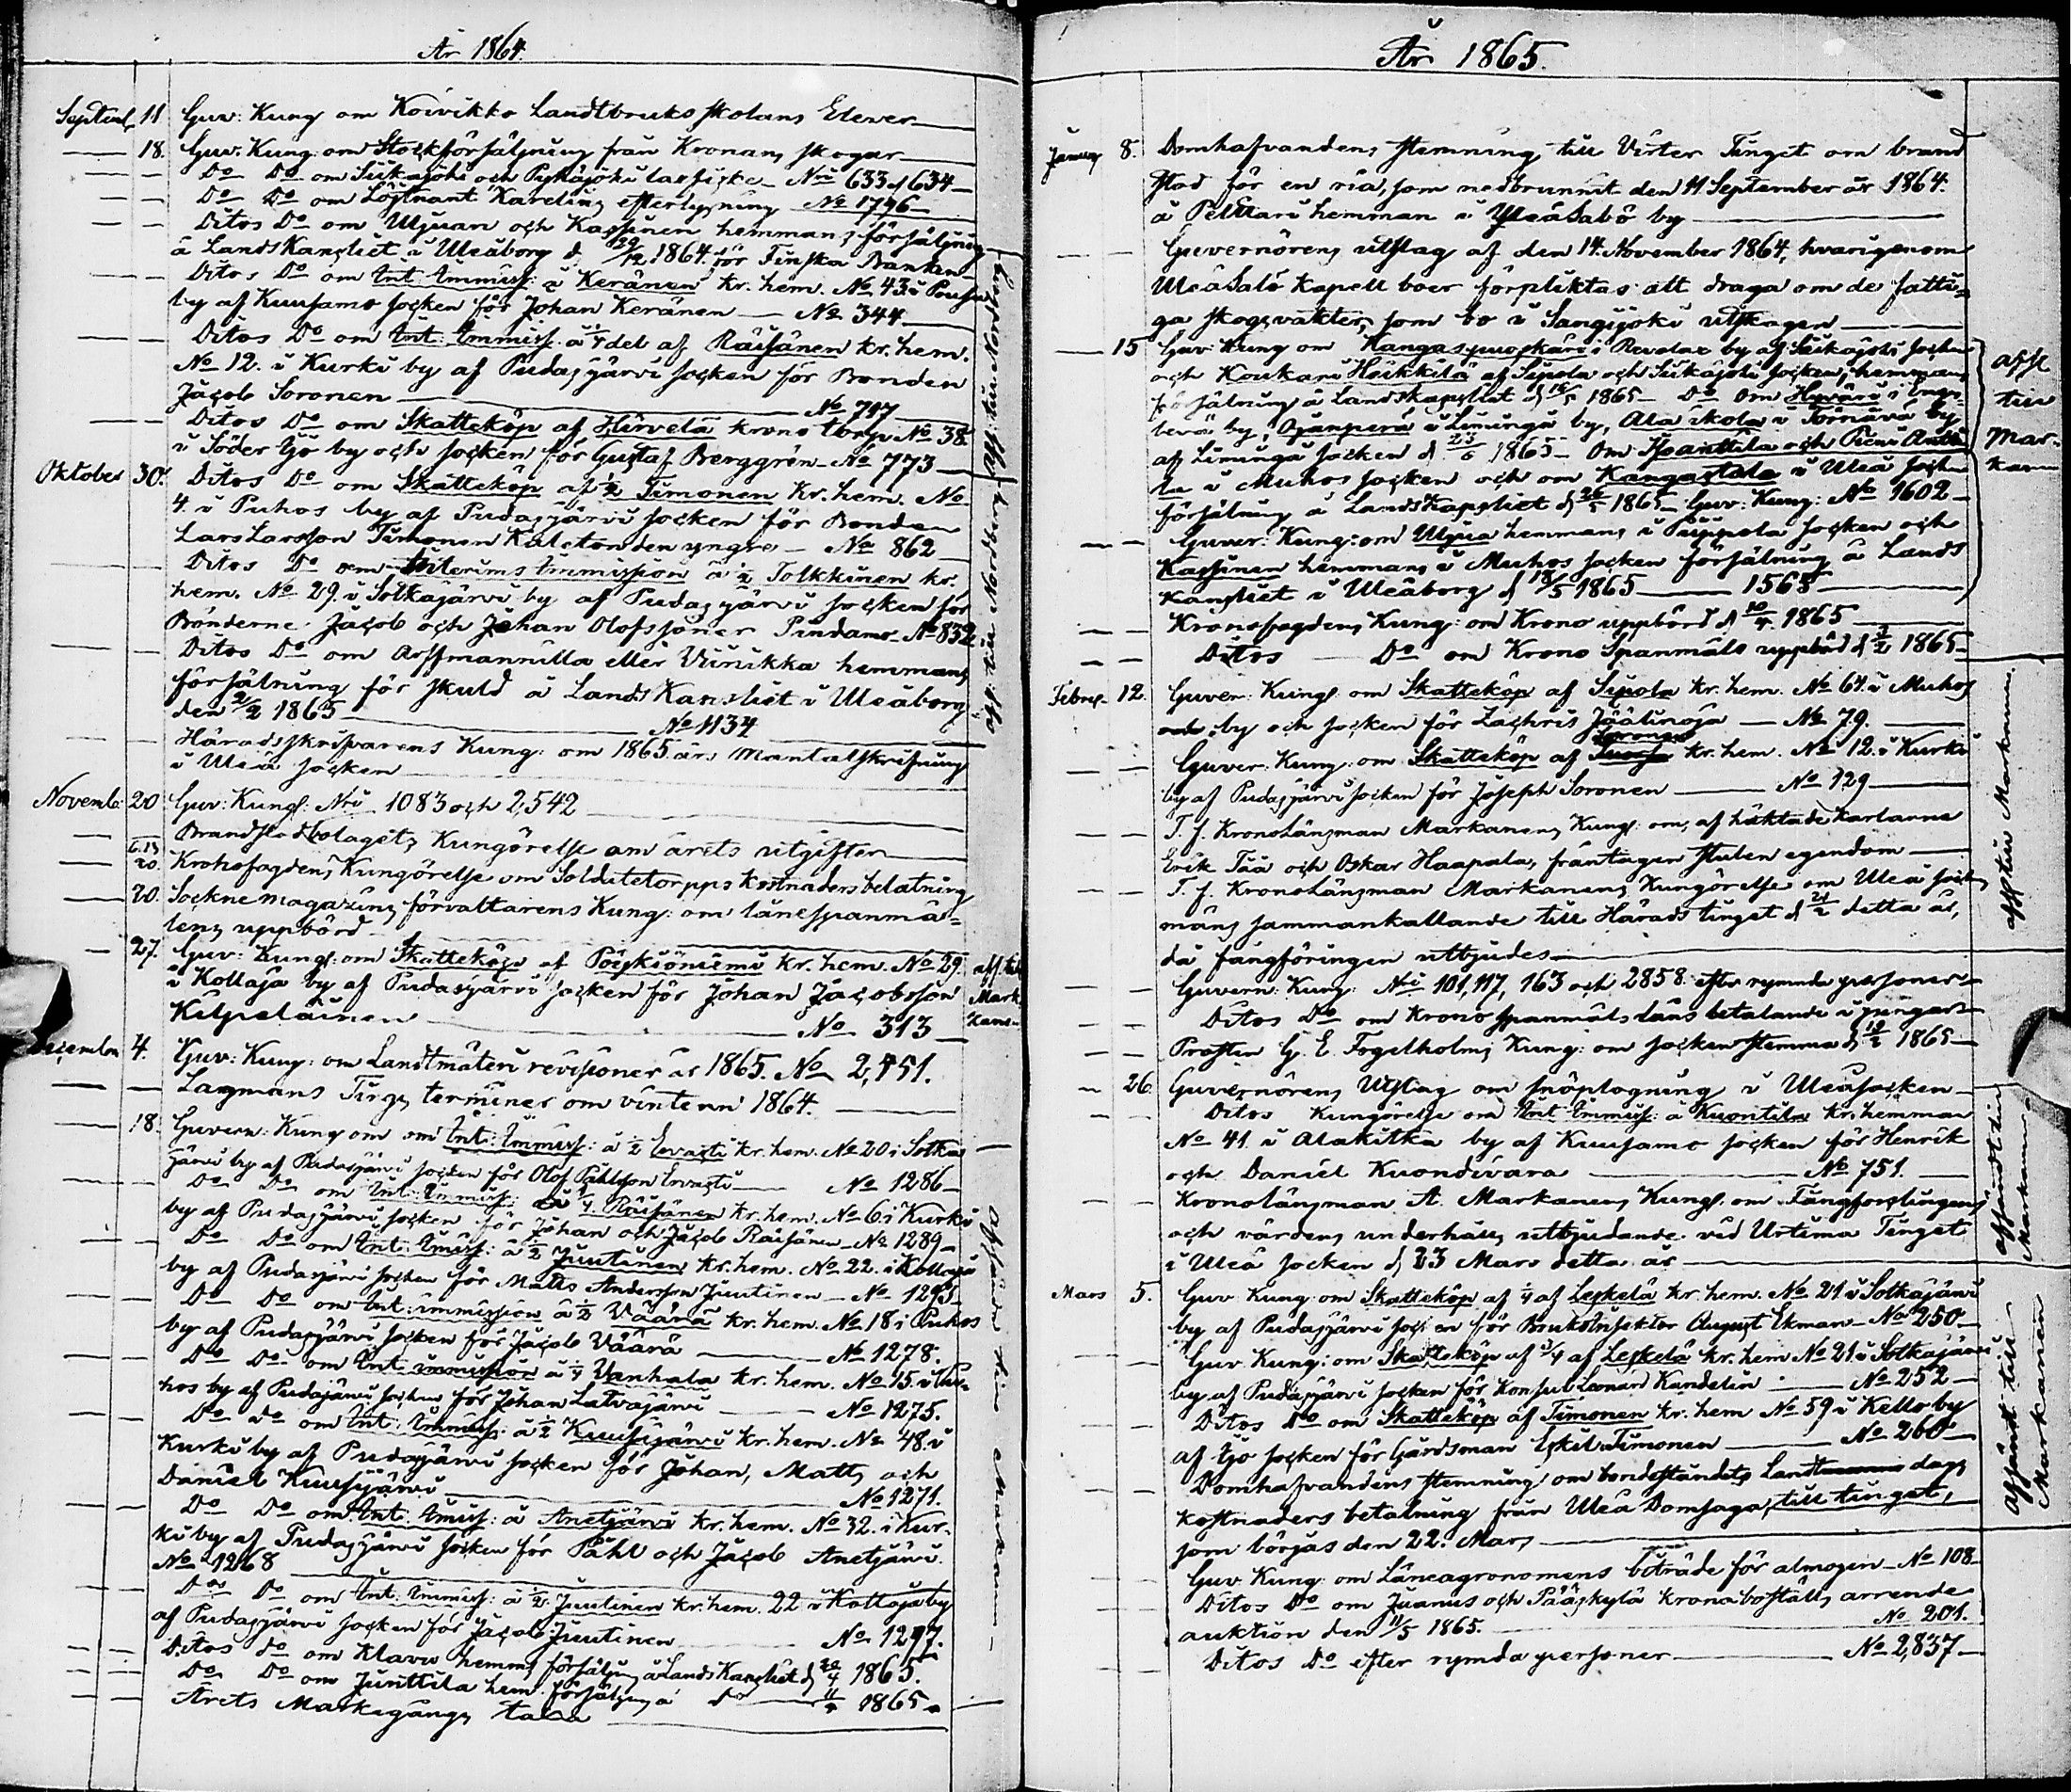 År 1864.
Septemb. 11 Guv: Kung om Koivikko Landtbruksskolans Elever
18. Guv: Kung: om Stockförsäljning från Kronans skogar
Do Do om Siikajoki och Pyhäjoki laxfiske Nri 633 o 634
Do Do om Löjtnant Karelins efterlysning No 1796
Ditos Do om Uljuan och Kassinen hemmans försäljning
å LandsKansliet i Uleåborg d. 29/12 1864. för Finska Banken
Ditos Do om Int. Immiss: å Keränen kr. hem. No 43. i
by af Kuusamo socken för Johan Keränen No 344
Ditos Do om Int. Immiss: å 1/4 del af Räisänen kr. hem.
No 12. i Kurki by af Pudasjärvi socken för Bonden
Jacob Soronen No 717
Ditos Do om Skatteköp af Hirvelä krono torp No 38.
i Söder Ijo by och socken för Gustaf Berggrén No 773
Oktober 30. Ditos Do om Skatteköp af 1/2 Timonen Kr. hem. No
4. i Puhos by af Pudasjärvi socken för Bonden
Lars Larsson Timonen Kaleton den yngre No 862
Ditos Do om Interims Immission å 1/2 Tolkkinen kr.
hem. No 29. i Sotkajärvi by af Pudasjärvi socken för
Bönderne Jacob och Johan Olofssöner Pindamo No 832
Ditos Do om Assmannilla eller Viinikka hemmans
försälning för skuld å LandsKansliet i Uleåborg
den 2/2 1865 No 1134
Häradsskrifvarens Kung: om 1865 års Mantalskrifning
i Uleå socken
Novemb: 20 Guv: Kung: Nri 1083 och 2,542
Brandstodsbolagets Kungörelse om årets utgifter
6.13 20. Kronofogdens Kungörelse om Solditetorpps kostnaders betalning
20. Sockne magazins förvaltarens Kung: om lånespanmå=
lens uppbörd
27. Guv: Kung: om Skatteköp af Pöyskiöniemi kr. hem. No 29.
i Kollaja by af Pudasjärvi socken för Johan Jacobsson
Kilpeläinen No 313
December 4. Guv: Kung: om Landtmäteri revisioner år 1865. No 2,451.
Lagmans Tings terminer om vintern 1864.
18. Guvern: Kung om om Int: Immiss: å 1/2 Ervasti kr. hem. No 20 i Sotka
järvi by af Pudasjärvi socken för Olof Påhlsson Ervasti No 1286
Do Do om Int: Immiss: å 1/4 Räisänen kr. hem. No 6. i Kurki
by af Pudasjärvi socken för Johan och Jacob Räisänen No 1289
Do Do om Int: Immiss: å 1/2 Juutinen kr. hem. No 22. i Kollaja
by af Pudasjärvi socken för Matts Andersson Juutinen No 1293
Do Do om Int: immission å 1/2 Väärä kr. hem. No 18 i Puhos
by af Pudasjärvi socken för Jacob Väärä No 1278.
Do Do om Int. immission å 1/4 Vanhala kr. hem. No 15. i Pu=
hos by af Pudasjärvi socken för Johan Latvajärvi No 1275.
Do do om Int: Immiss: å 1/2 Kuusijärvi kr. hem. No 48. i
Kurki by af Pudasjärvi socken för Johan, Matts och
Daniel Kuusijärvi No 1271.
Do Do om Int: Immiss: å Anetjärvi kr. hem. No 32. i Kur=
ki by af Pudasjärvi socken för Påhl och Jacob Anetjärvi.
No 1268
Do Do om Int: Immiss: å 1/2 Juutinen kr. hem. 22 i Kollaja by
af Pudasjärvi socken för Jacob Juutinen No 1297.
Ditos do om Klaavu hemms försäljng å LandsKansliet d 20/4 1865.
Do Do om Junttila hem. försäljng å Do 1865
Årets Markegångs taxa
aff. till Nordberg
aff. till Nordberg
aff till
Mark
kanen
Afsändt till Markanen
År 1865.
Januari 8. Domhafvandens stemning till Vinter Tinget om brand
stod för en ria, som nedbrunnit den 11 September år 1864.
å Pelttari hemman i UleåSalo by
Guvernörens utslag af den 14. November 1864, hvarigenom
UleåSalo Kapell boer förpliktas att draga om de fatti=
ga skogsvakter, som bo i Sangijoki utskogen
15 Guv: Kung om i Revolax by af Siikajoki socken
och Koukari Heikkilä af Sipola och Siikajoki socken, hemmans
försälning å Landskansliet d 1865 Do om Hyväri i
by, Ojanperä i Limingo by, Ala ikola i Törnävä by
af Limingo socken d 23/5 1865 om Spanttila och Pieni Antti=
la i Muhos socken och om Kangastalo i Uleå socken
försälning å LandsKansliet d 26/5 1865 Guv: Kung: No 1602
Guver: Kung: om Uljua hemmans i Piippola socken och
Kassinen hemmans i Muhos socken försälning å Lands
kansliet i Uleåborg d 18/5 1865 1565
Kronofogdens Kung: om Krono uppbörd d 10/4 1865
Ditos Do om Krono Spanmåls uppbörd d 1/2 1865
Febru. 12. Guver: Kung: om Skatteköp af Sipola kr. hem. No 64. i Muhos
by och socken för Zachris Jäälinoja No 79.
Soronen
Guver: Kung: om Skatteköp af kr. hem. No 12. i Kurki
by af Pudasjärvi socken för Joseph Soronen No 129
T. f. Kronolänsman Markanens Kung: om, af häktade karlarne
Erik Tää och Oskar Haapala, fråntagen stulen egendom
T. f. Kronolänsman Markanens Kungörelse om Uleå socken
mäns sammankallande till Härads tinget d 21/2 detta år,
då fångföringen utbjudes
Guvern: Kung: Nri 101, 117, 163 och 2858. efter rymda personer
Ditos Do om krono spanmåls låns betalande i pengar
Prosten G. E. Fogelholms Kung: om socken stemma d 13/2 1865
26. Guvernörens Utslag om snöplogning i Uleåsocken
Ditos Kungörelse om Int Immiss: å Kuontila kr. hemman
No 41. i Alakitka by af Kuusamo socken för Henrik
och Daniel Kuondivara No 751.
Kronolänsman A. Markanens Kung: om Fångforslingens
och vårdens underhålls utbjudande vid Urtima Tinget
i Uleå socken d 23 Mars detta år
Mars 5. Guv: Kung om Skatteköp af 1/4 af Leskelä kr. hem. No 21 i Sotkajärvi
by af Pudasjärvi socken för BruksInspektor August Ekman No 250
Guv: Kung: om Skatteköp af 3/4 af Leskelä kr. hem No 21. i Sotkajärvi
by af Pudasjärvi socken för Konsul Leonard Kandelin No 252
Ditos Do om Skatteköp af Timonen kr. hem No 59 i Kello by
af Ijo socken för Gårdsman Eskil Timonen No 260
Domhafvandens stemning om bondeståndets Land dags
kostnaders betalning från Uleå Domsaga, till tinget,
som börjas den 22. Mars
Guv: Kung: om Länsagronomens biträde för almogen No 108
Ditos Do om Juanus och Pääskylä krono boställs arrende
auktion den 11/5 1865. No 201.
Ditos Do efter rymda personer No 2,837
aff.
till
Mar=
kanen
aff till Markanen.
affändt till
Markanen
afsändt till
Markanen